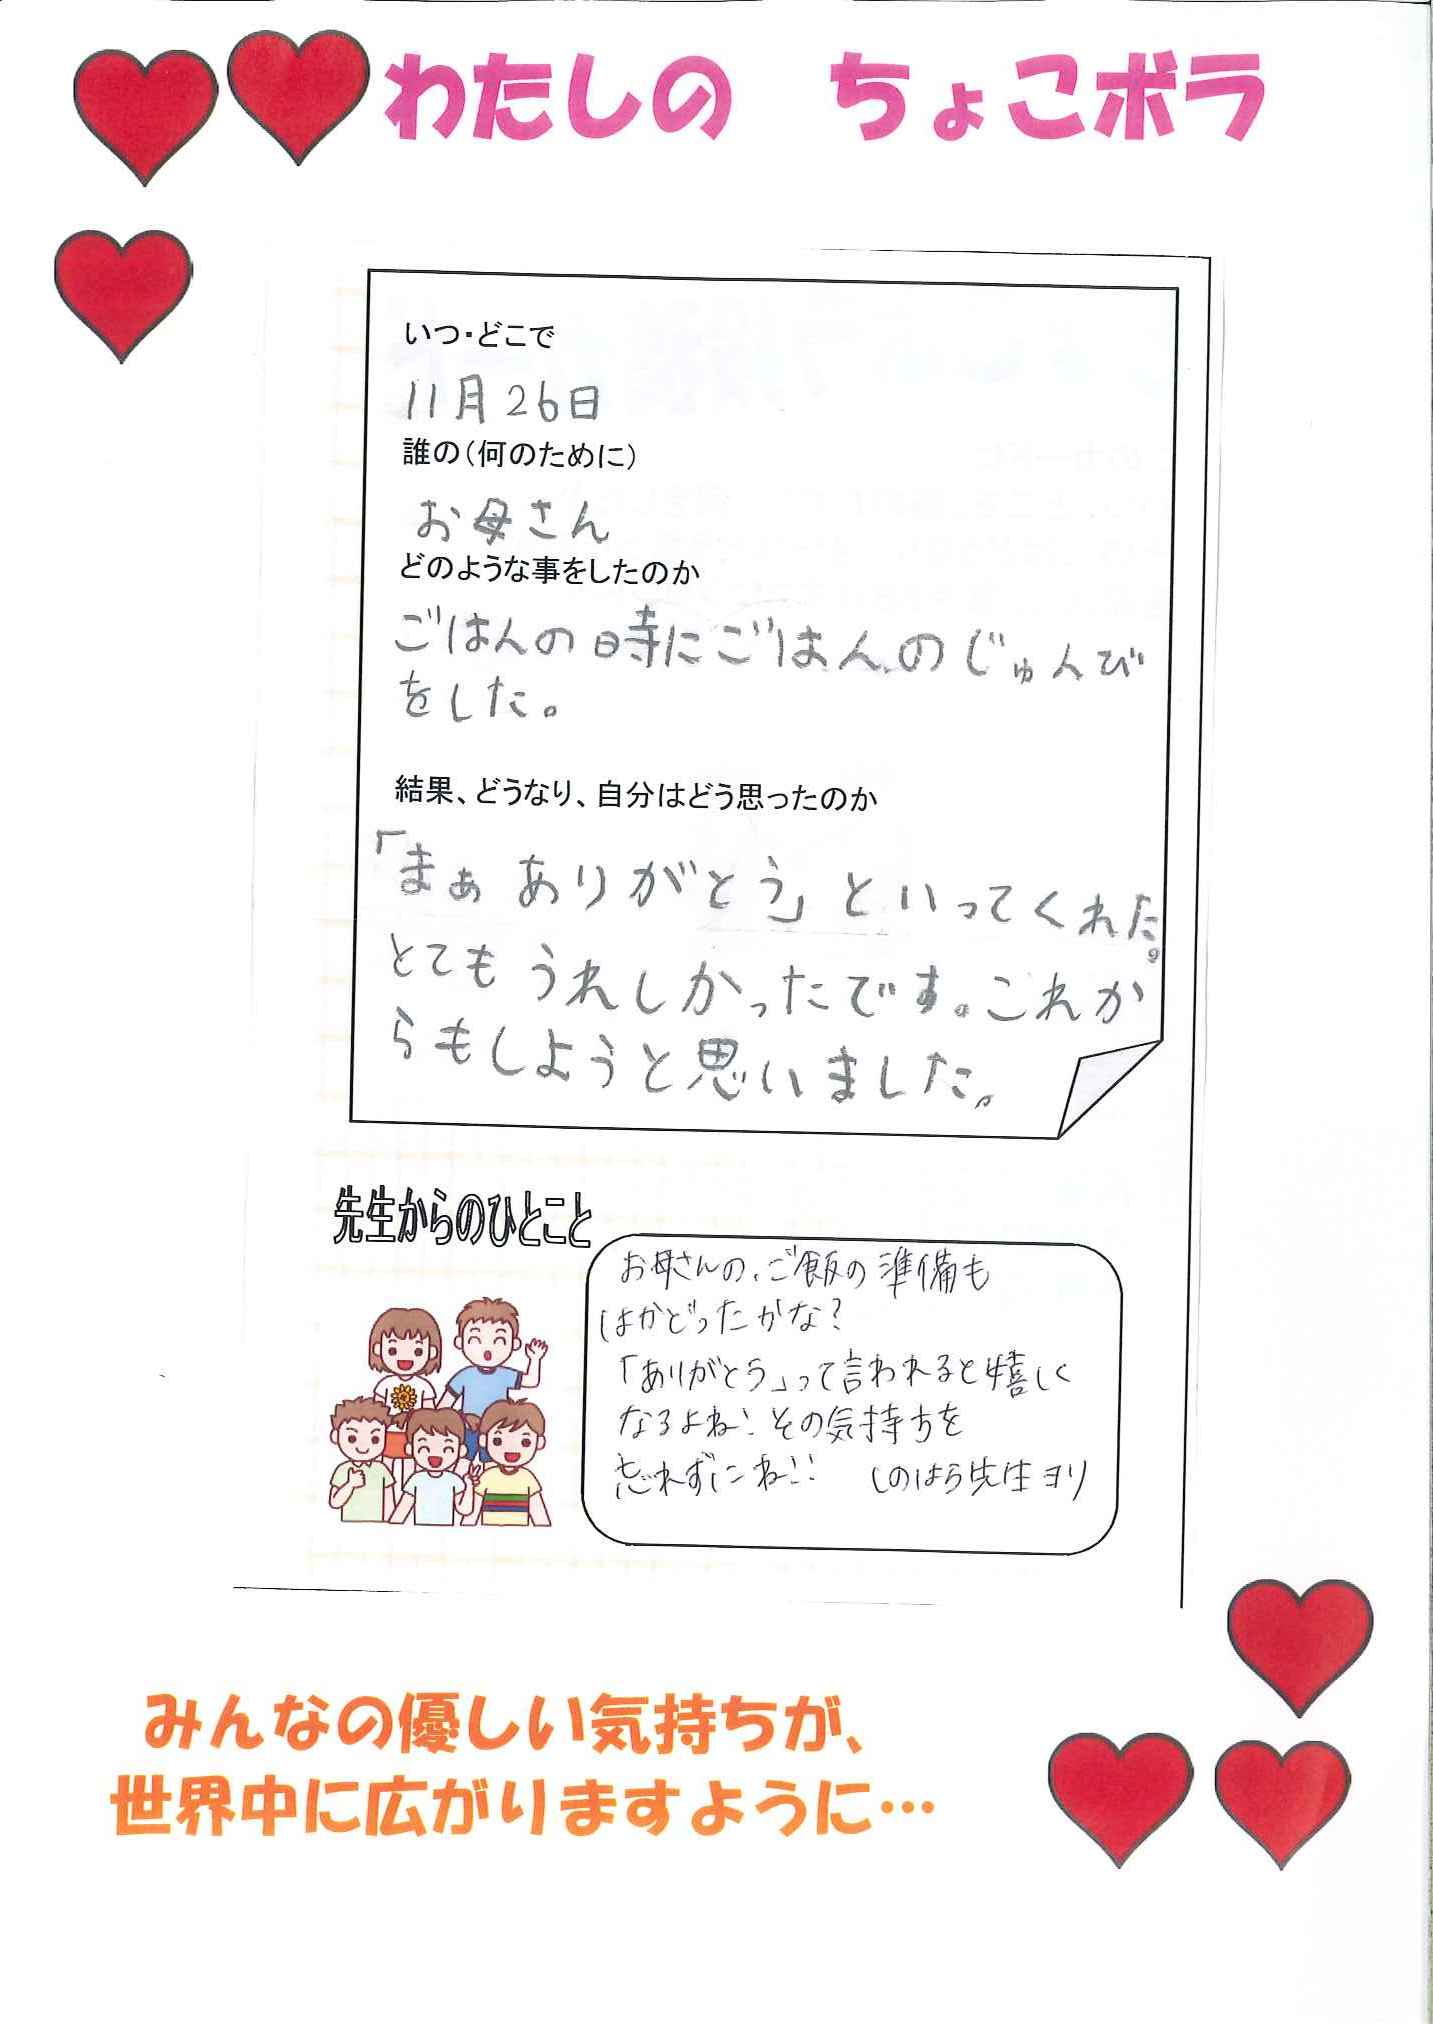 わたしの　ちょこボラ
いつ・どこで
11月26日
誰の（何のために）
お母さん
どのような事をしたのか
ごはんの時にごはんのじゅんび
をした。
結果、どうなり、自分はどう思ったのか
「まぁ ありがとう」といってくれた。
とてもうれしかったです。これか
らもしようと思いました。
先生からのひとこと
お母さんの、ご飯の準備も
はかどったかな？
「ありがとう」って言われると嬉しく
なるよね！その気持ちを
忘れずにね!! しのはら先生ヨリ
みんなの優しい気持ちが、
世界中に広がりますように…